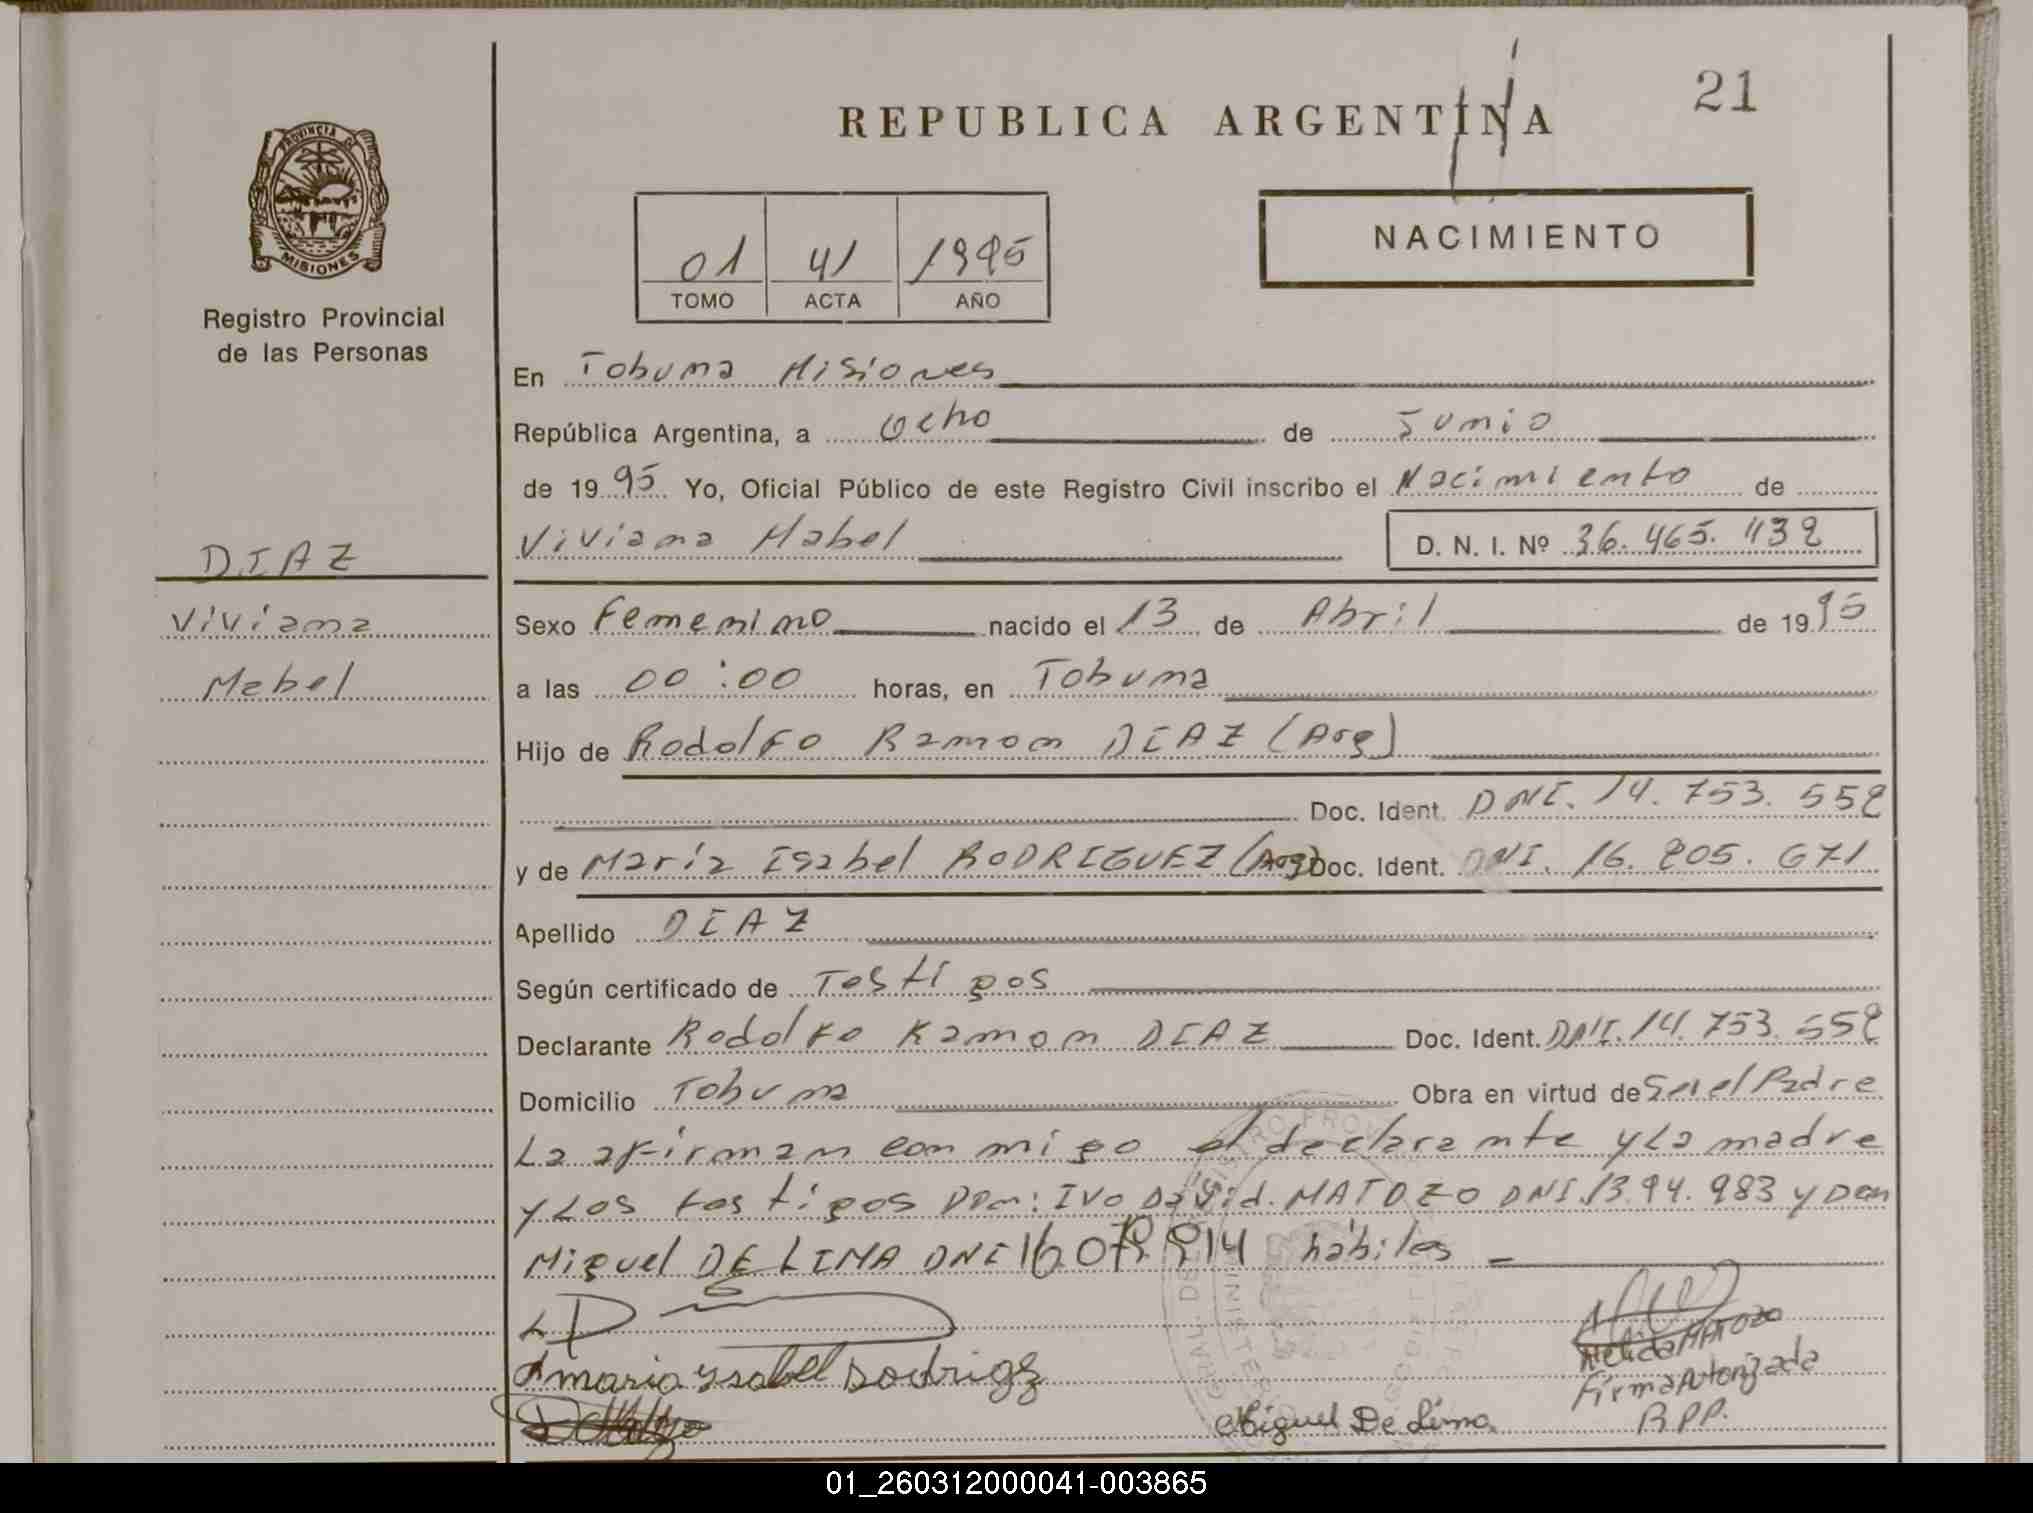 21
REPUBLICA ARGENTINA
PROVINCIA DE
MISIONES
Registro Provincial
de las Personas
01 41 1995
TOMO ACTA AÑO
NACIMIENTO
En Tobuna Misiones
República Argentina, a Ocho de Junio
de 1995 Yo, Oficial Público de este Registro Civil inscribo el Nacimiento de
Viviana Mabel D. N. I. Nº 36.465.1132
DIAZ
Viviana
Mabel
Sexo Femenino nacido el 13 de Abril de 1995
a las 00:00 horas, en Tobuna
Hijo de Rodolfo Ramon DIAZ (Arg)
Doc. Ident. DNI. 14.753.552
y de María Isabel RODRIGUEZ (Arg) Doc. Ident. DNI. 16.205.671
Apellido DIAZ
Según certificado de Testigos
Declarante Rodolfo Ramon DIAZ Doc. Ident. DNI. 14.753.552
Domicilio Tobuna Obra en virtud de Ser el Padre
La afirman con migo el declarante y La madre
y Los testigos Don: Ivo David. MATOZO DNI. 13.94.983 y Don
Miguel DE LIMA DNI habiles
maria ysabel Rodrigz
Nelida MATOZO
Firma Autorizada
R.P.P.
Miguel De Lima
01_260312000041-003865